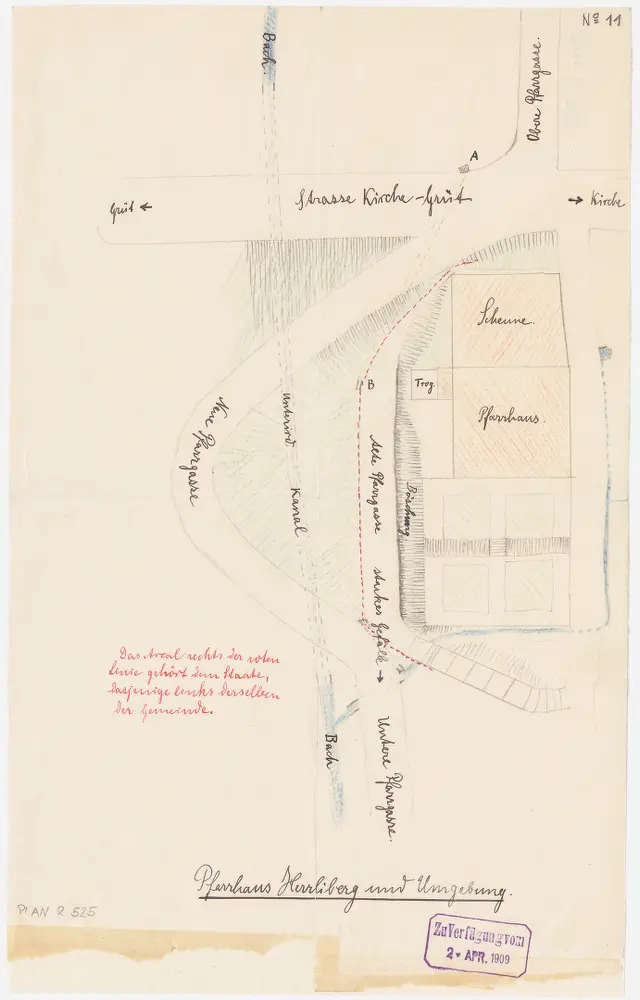 Nº 11
Bach.
Obere Pfarrgasse.
A
Grüt ←
Strasse Kirche-Grüt
→ Kirche
Scheune.
B
Trog
Pfarrhaus.
Neue Pfarrgasse
Unterird. Kanal
Alte Pfarrgasse starkes Gefälle →
Böschung.
Das Areal rechts der roten
Linie gehört dem Staate,
dasjenige links derselben
der Gemeinde.
Bach
Untere Pfarrgasse.
Pfarrhaus Herrliberg und Umgebung.
PLAN R 525
Zu Verfügung vom
2 · APR. 1909